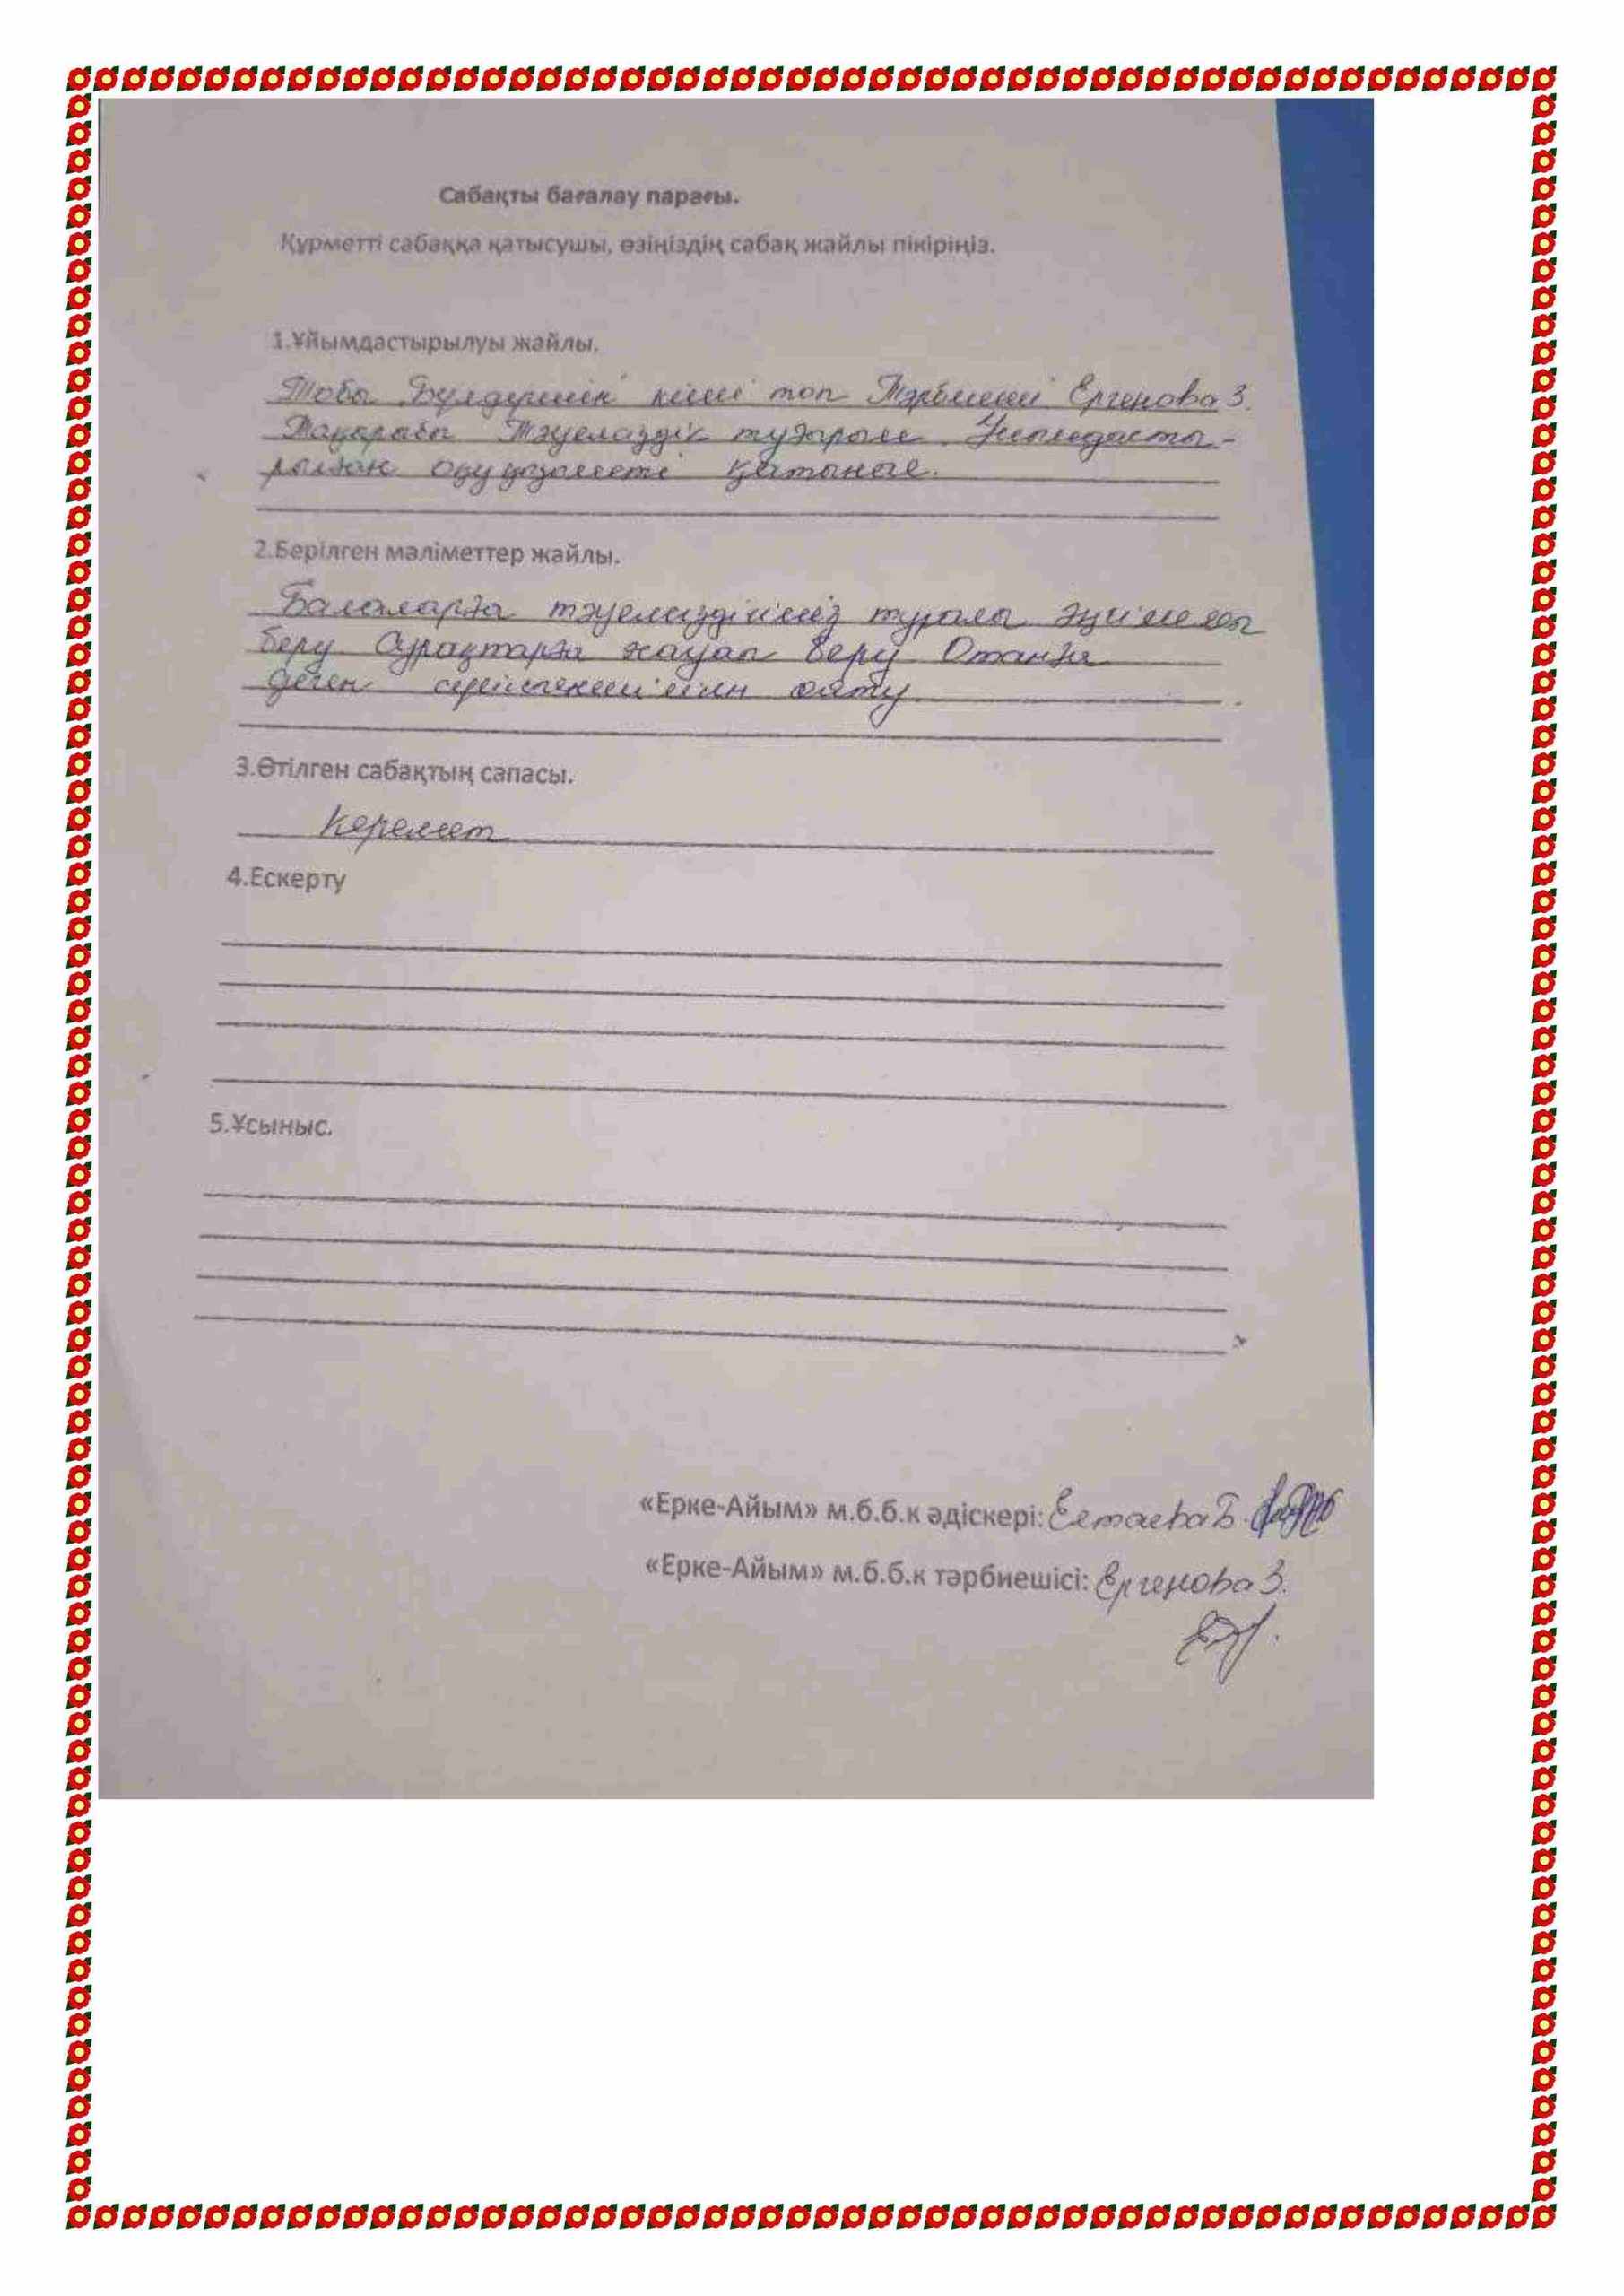 Сабақты бағалау парағы.
Құрметті сабаққа қатысушы, өзіңіздің сабақ жайлы пікіріңіз.
1.Ұйымдастырылуы жайлы.
Тобы "Бүлдіршін" кіші топ Тәрбиеші Ергенова З.
Тақырабы Тәуелсіздік тұғырым. Ұйымдасты-
рылған оқу қызметі қатынас.
2.Берілген мәліметтер жайлы.
Балаларға тәуелсіздігіміз туралы әңгімелеп
беру Сұрақтарға жауап беру Отанға
деген сүйіспеншілігін ояту.
3.Өтілген сабақтың сапасы.
Керемет
4.Ескерту
5.Ұсыныс.
«Ерке-Айым» м.б.б.к әдіскері: Елтаева Б.
«Ерке-Айым» м.б.б.к тәрбиешісі: Ергенова З.